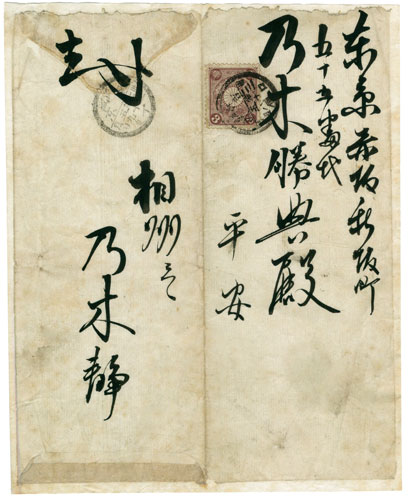 東京赤坂新坂町
五十五番地
乃木勝典殿
平安
封
相州ニて
乃木静